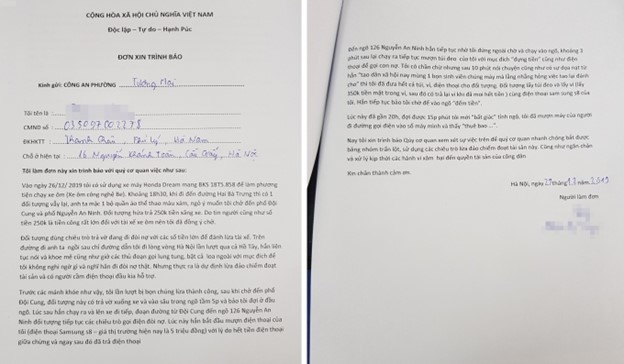 CỘNG HÒA XÃ HỘI CHỦ NGHĨA VIỆT NAM
Độc lập – Tự do – Hạnh Púc
ĐƠN XIN TRÌNH BÁO
Kính gửi: CÔNG AN PHƯỜNG Tương Mai
Tôi tên là
CMND số : 035097002278
ĐKHKTT : Thanh Châu, Phủ Lý, Hà Nam
Chỗ ở hiện tại : 16 Nguyễn Khánh Toàn, Cầu Giấy, Hà Nội
Tôi làm đơn này xin trình báo với quý cơ quan việc như sau:
Vào ngày 26/12/ 2019 tôi có sử dụng xe máy Honda Dream mang BKS 18T5.858 để làm phương
tiện chạy xe ôm (Xe ôm công nghệ Be). Khoảng 18h30, khi đi đường Hai Bà Trưng thì có 1
đối tượng vẫy lại, anh ta mặc 1 bộ quần áo thể thao màu xám, ngỏ ý muốn tôi chở đến phố Đội
Cung và phố Nguyễn An Ninh. Đối tượng hứa trả 250k tiền xăng xe. Do tin người cũng như số
tiền 250k là tiền công rất lớn đối với tài xế xe ôm nên tôi đã đồng ý chở.
Đối tượng dùng chiêu trò trả vờ đang đi đòi nợ với các số tiền lớn để đánh lừa tài xế. Trên
đường đi anh ta ngồi sau chỉ đường dẫn tôi đi lòng vòng Hà Nội lần lượt qua cả Hồ Tây, hắn liên
tục nói và khoe mẽ cũng như giở các thủ đoạn gọi lung tung, bật cả loa ngoài với mục đích để
tôi không nghi ngờ gì và nghĩ hắn đi đòi nợ thật. Nhưng thực ra là dự định lừa đảo chiếm đoạt
tài sản và có người cầm điện thoại đầu kia hỗ trợ.
Trước các mánh khóe như vậy, tôi lần lượt bị bọn chúng lừa thành công, sau khi chở đến phố
Đội Cung, đối tượng này có trả vờ xuống xe và vào sâu trong ngõ tầm 5p và bảo tôi đợi ở đầu
ngõ. Lúc sau hắn chạy ra và lên xe đi tiếp, đoạn đường từ Đội Cung đến ngõ 126 Nguyễn An
Ninh đối tượng tiếp tục các chiêu trò gọi điện đòi nợ. Lúc này hắn bắt đầu mượn điện thoại của
tôi (điện thoại Samsung s8 – giá thị trường hiện nay là 5 triệu đồng) với lý do hết tiền điện thoại
giữa chừng và ngay sau đó đã trả điện thoại
Đến ngõ 126 Nguyễn An Ninh hắn tiếp tục nhờ tôi đứng ngoài chờ và chạy vào ngõ, khoảng 3
phút sau lại chạy ra tiếp tục mượn túi đeo của tôi với mục đích "đựng tiền" cũng như điện
thoại để gọi con nợ.
Hắn tiếp tục bảo tôi chờ để vào ngõ "đếm tiền".
Lúc này đã gần 20h, đợi được 15p phút tôi mới "bất giác" tỉnh ngộ, tôi đã mượn máy của người
đi đường gọi điện vào số máy mình và thấy "thuê bao …".
Nay tôi xin trình báo Qúy cơ quan xem xét sự việc trên để quý cơ quan nhanh chóng bắt được
băng nhóm trấn lột, sử dụng các chiêu trò lừa đảo chiếm đoạt tài sản. Cũng như ngăn chặn
và xử lý kịp thời các hành vi xâm hại đến quyền tài sản của công dân
Xin chân thành cảm ơn.
Hà Nội, ngày
Người làm đơn